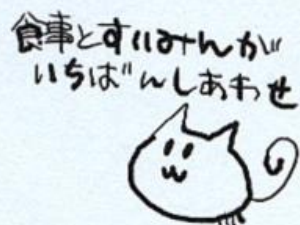 食事とすいみんが
いちばんしあわせ